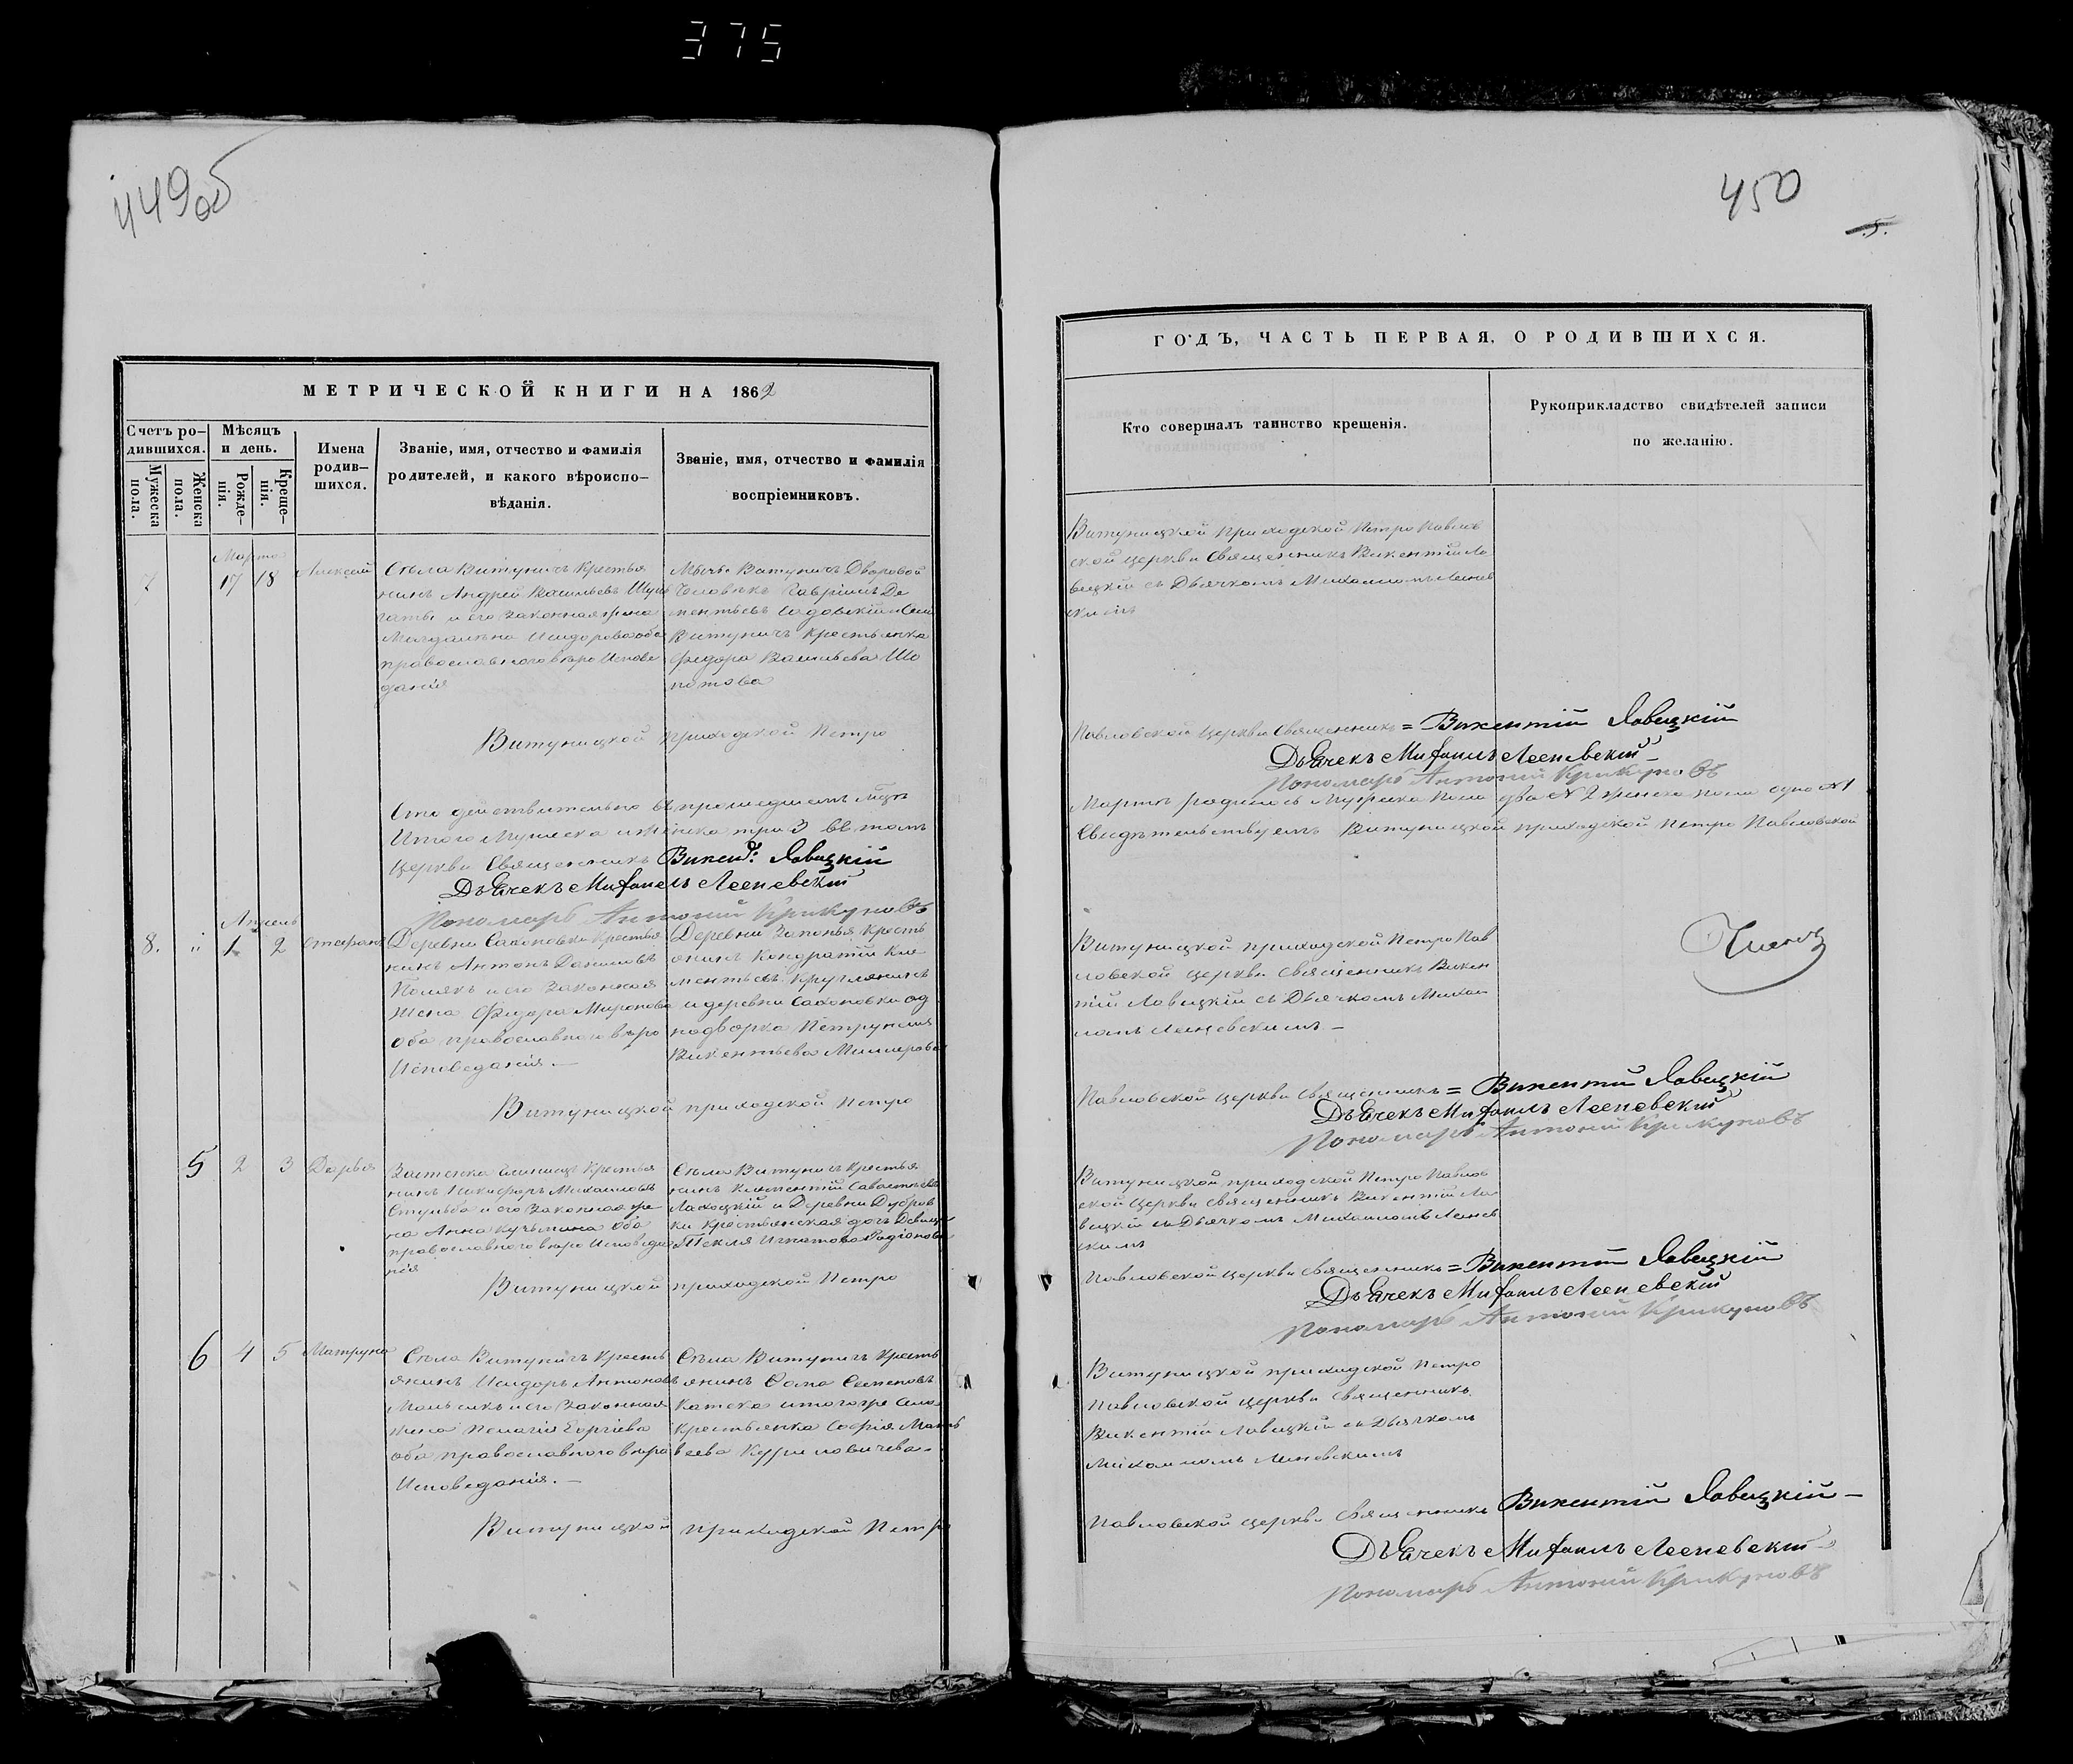 375
449об
МЕТРИЧЕСКОЙ КНИГИ НА 1862
Счетъ ро-
дившихся.
Мужеска
пола.
Женска
пола.
Мѣсяцъ
и день.
Рожде-
нія.
Креще-
нія.
Имена
родив-
шихся.
Званіе, имя, отчество и фамилія
родителей, и какого вѣроиспо-
вѣданія.
Званіе, имя, отчество и фамилія
воспріемниковъ.
Марта
7 17 18 Алексѣй
Села Витуничъ крестья
нинъ Андрей Васильевъ
и его законная жена
Исидорова оба
православнаго вѣро Испове
данія
Витуничъ Дворовой
Человѣкъ Гавріилъ Де
ментьевъ Садовскій и Села
Витуничъ крестьянка
Федора Васильева Шо
потова
Витуницкой приходской Петро
Что действительно въ прошедшемъ
Итого Мужеска и женска три 3 въ томъ
Церкви Священникъ Викен: Лавицкій
Дьячекъ Михаилъ
Пономарь Антоній Крикуновъ
Апрель
8. 1 2 Стефанъ
Деревни Сахоновки крестья
нинъ Антонъ Даниловъ
Полякъ и его законная
жена Федора Миронова
оба православнаго вѣро
Исповеданія.—
Деревни крестья
янинъ Кондратій Кле
ментьевъ Круглянинъ
и деревни Сахоновки од
нодворка Петрунеля
Викентьева Миллерова
Витуницкой приходской Петро
5 2 3 Дарья
Застенка крестья
нинъ Никифоръ Михаиловъ
и его законная же
на Анна Кузьмина оба
православнаго вѣро Исповеда
нія
Села Витуничъ крестья
нинъ Климентій Савастьевъ
и Деревни Дубров
ки крестьянская дочь Девица
Текля Игнатова Радіонова
Витуницкой приходской Петро
6 4 5 Матруна
Села Витуничъ кресть
янинъ Исидоръ Антоновъ
и его Законная
жена Пелагія Еоргіева
оба православнаго вѣро
Исповеданія.—
Села Витуничъ кресть
янинъ Фома Семеновъ
Катека и тогоже Села
крестьянка Софія Мат
веева Курриловичева.
Витуницкой приходской Петро
450
5.
ГОДЪ, ЧАСТЬ ПЕРВАЯ, О РОДИВШИХСЯ.
Кто совершалъ таинство крещенія.
Рукоприкладство свидѣтелей записи
по желанію.
Витуницкой приходской Петро Павлов
ской церкви Священникъ Викентій Ла
вицкій съ Дьячкомъ Михаиломъ
Павловской Церкви Священникъ = Викентій Лавицкій
Дьячекъ Михаилъ
Пономарь Антоній Крикуновъ
Марте родилось Мужеска пола два № 2 женска пола одно № 1
Свидѣтельствуемъ Витуницкой приходской Петро Павловской
Витуницкой приходской Петро Пав
ловской церкви Священникъ Викен
тій Лавицкій съ Дьячкомъ Михаи
ломъ
Павловской церкви Священникъ = Викентій Лавицкій
Дьячекъ Михаилъ
Пономарь Антоній Крикуновъ
Витуницкой приходской Петро Павлов
ской Церкви Священникъ Викентій Ла
вицкій съ Дьячкомъ Михаиломъ
Павловской церкви Священникъ = Викентій Лавицкій
Дьячекъ Михаилъ
Пономарь Антоній Крикуновъ
Витуницкой приходской Петро
Павловской церкви Священникъ
Викентій Лавицкій съ Дьячкомъ
Михаиломъ
Павловской церкви Священникъ Викентій Лавицкій—
Дьячекъ Михаилъ
Пономарь Антоній Крикуновъ